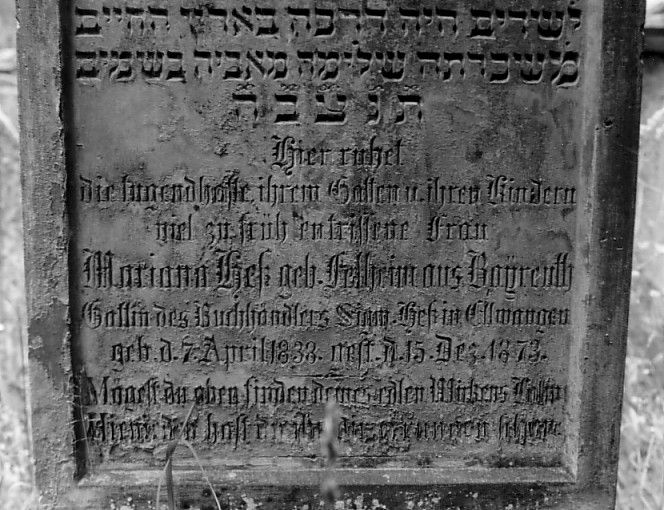 ישרים היה לרפה בארץ החיים
משכרתה שלימה מאביה בשמים
תנצבה
Hier ruhet
die tugendhafte, ihrem Gatten u. ihren Kindern
viel zu früh entrissene Frau
Mariana Heß geb. Fellheim aus Bayreuth
Gattin des Buchhändlers Sigm. Heß in Ellwangen
geb. d. 7. April 1838. gest. d. 15. Dez. 1873.
Mögest du oben finden deines edlen Wirkens Lohn
hast